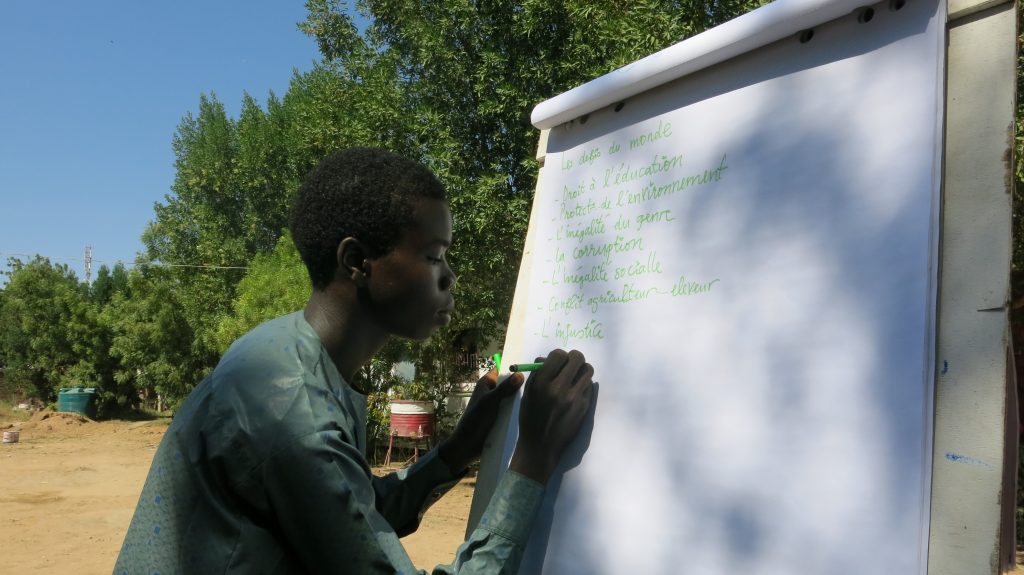 Les defis du monde
- Droit à l'éducation
- Protectø de l'environnement
- L'inégalité du genre
- La corruption
- L'inégalité socialle
- Conflit agriculteur-eleveur
- L'injustice